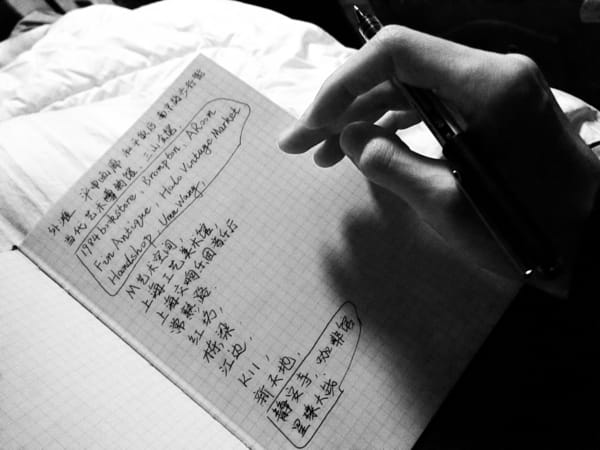 外滩 米中画廊 和平饭店 南京路步行街
当代艺术博物馆 三山会馆
1984 bookstore, Brompton, ARoom
Fun Antique, Halo Vintage Market
Handshop, Vera Wang,
M艺术空间
上海工艺美术馆
上海交响乐团音乐厅
常熟路
红坊,
栋梁,
江边,
K11,
新天地,
静安寺, 咖啡馆
里弄大世